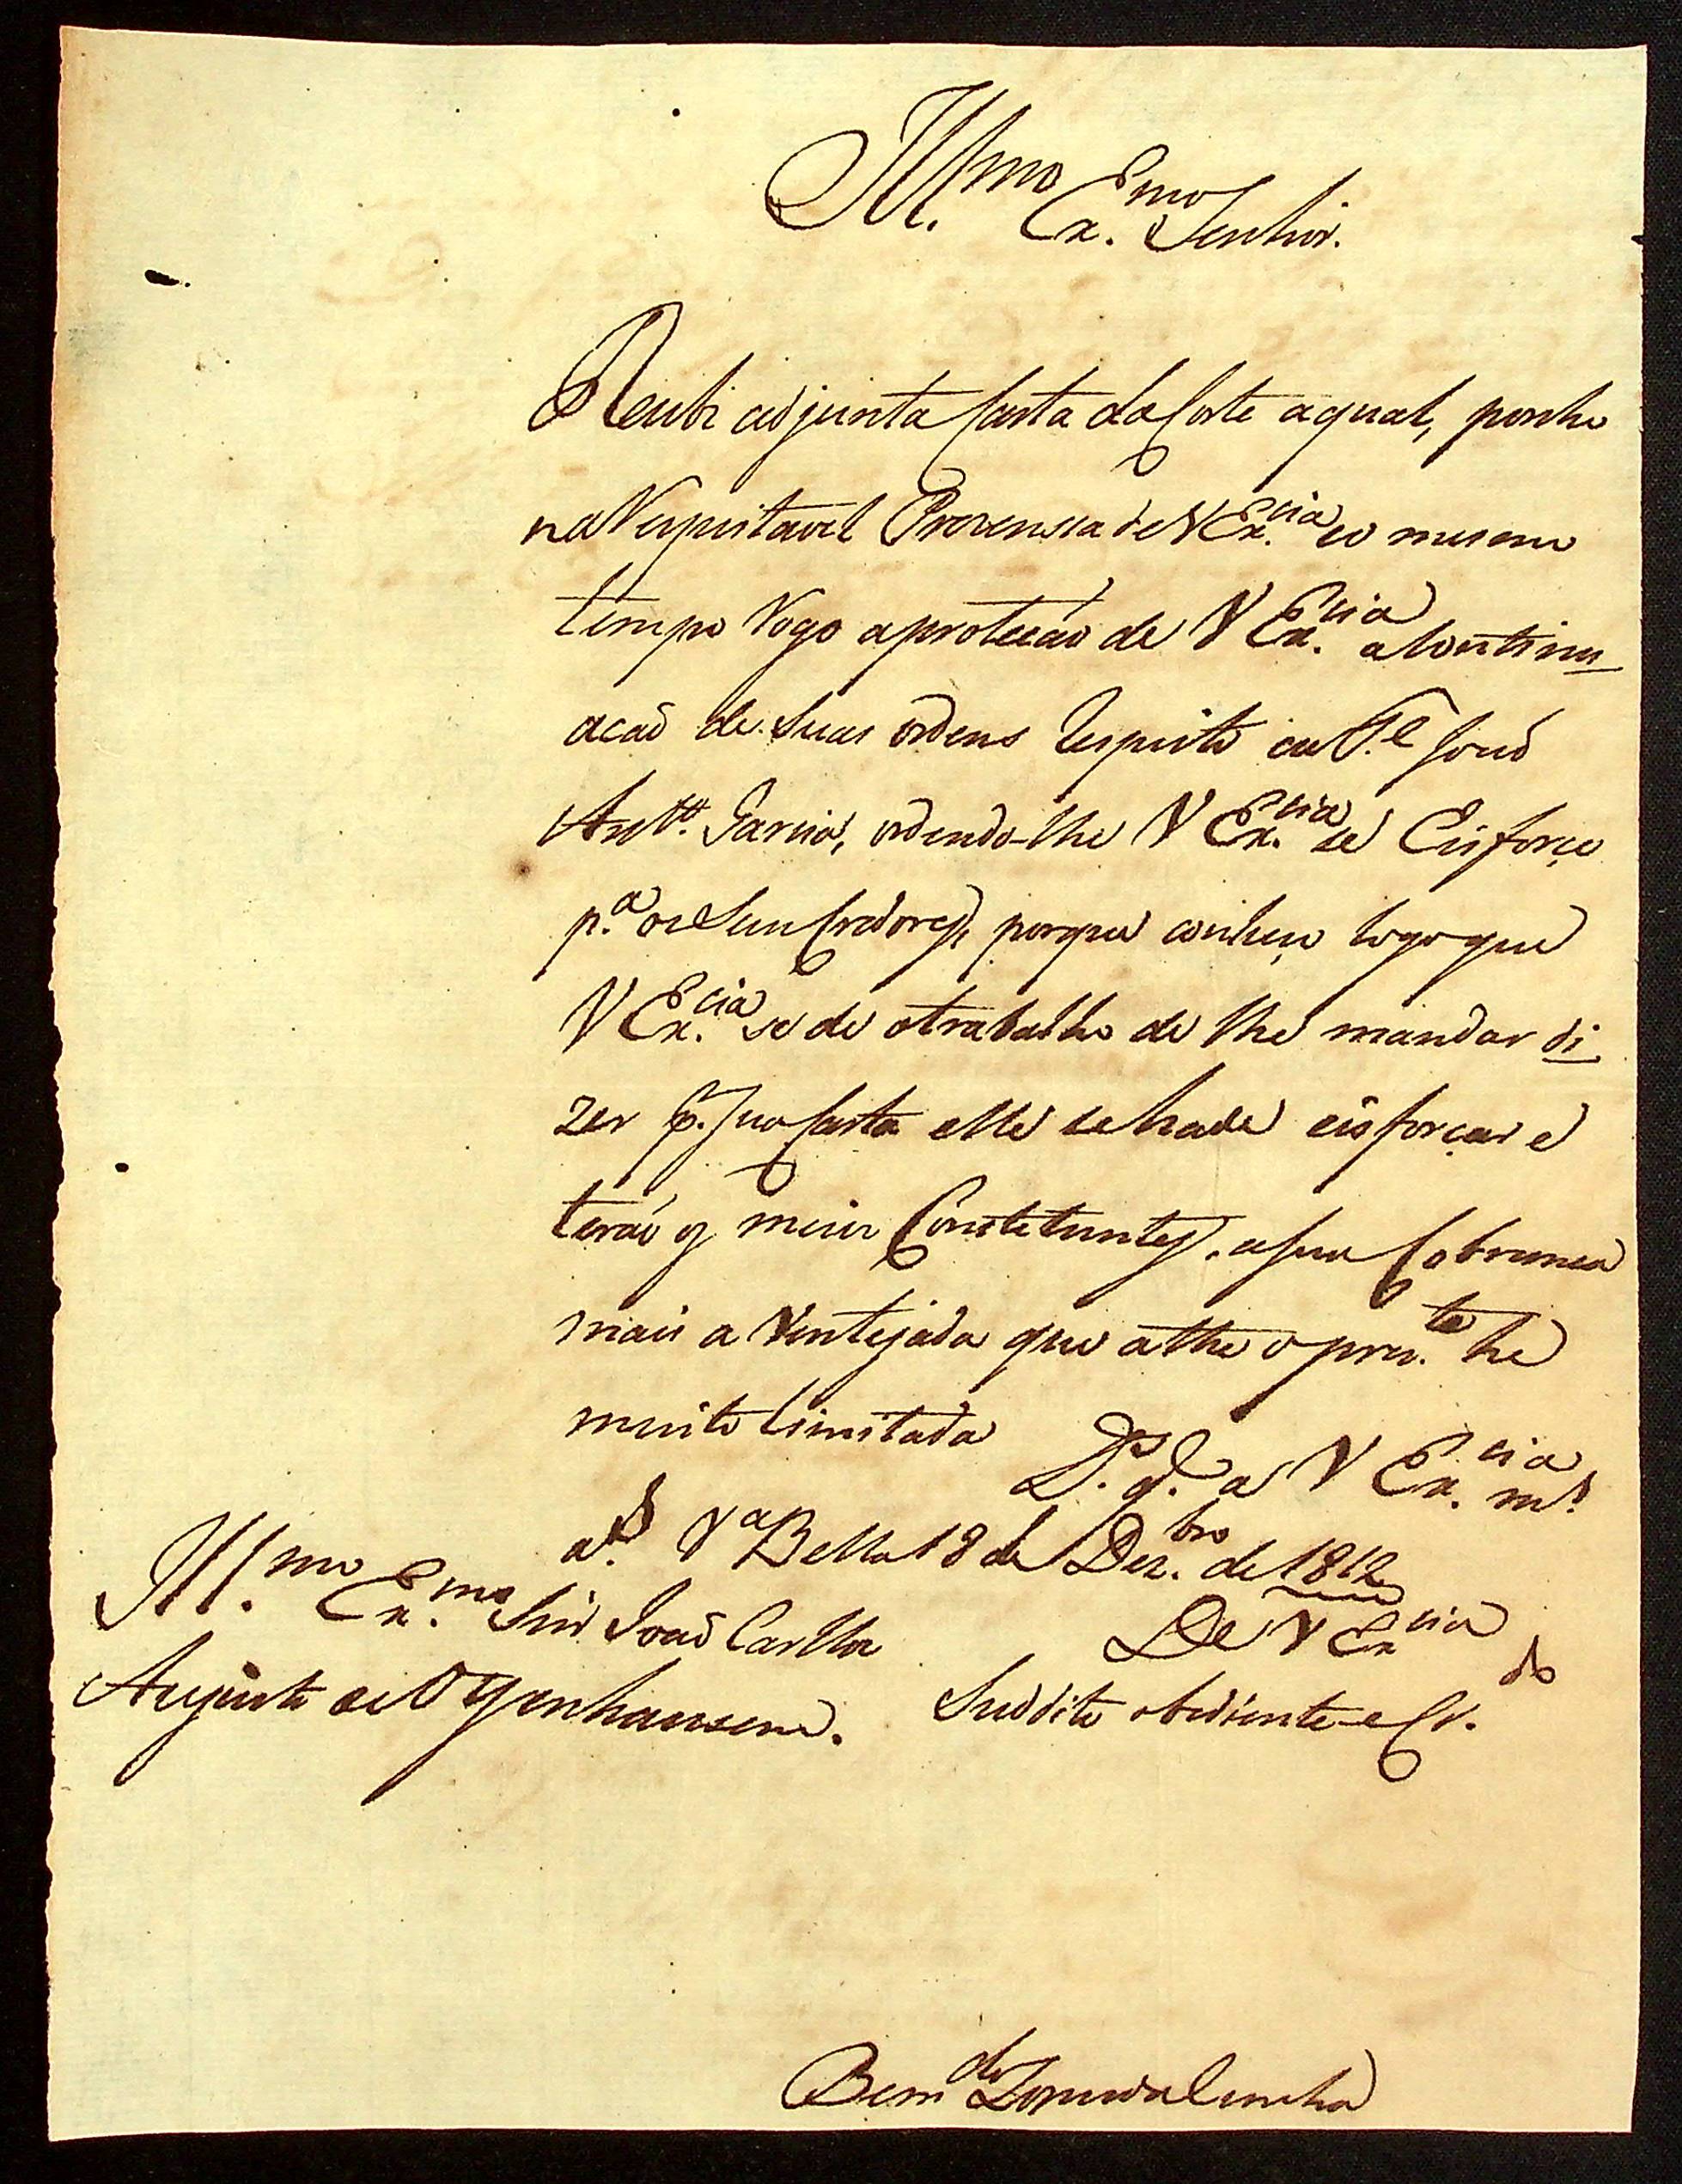 Ill.mo Ex.mo Senhor.
Recubi adjunta Carta da Corte aqual, ponho
na Respeitavel Prezensia de V Ex.cia eo mesmo
tempo Rogo aproteção de V Ex.cia a Continu
acaõ de Suas ordens Respeito ao T.e Joaõ
Ant.o Garcia, ordendo-lhe V Ex.cia se Eisforçe
p.a os Seus Credores, porque conheço logo que
V Ex.cia se de otrabalho de lhe mandar di
zer p.r sua Carta elle se hade eisforçar e
teraõ os meus Constetuntes, a sua Cobransa
mais a Ventejada que athe o prez.te he
muito limitada D.s g.e a V Ex.cia m.s
a.s V.a Bella 18 de Dez.bro de 1812
Ill.mo Ex.mo Snr Joaõ Carlos
De V Ex.cia
Augusto de Oyenhausem.
Suddito obediente e Cr.do
Bern.do